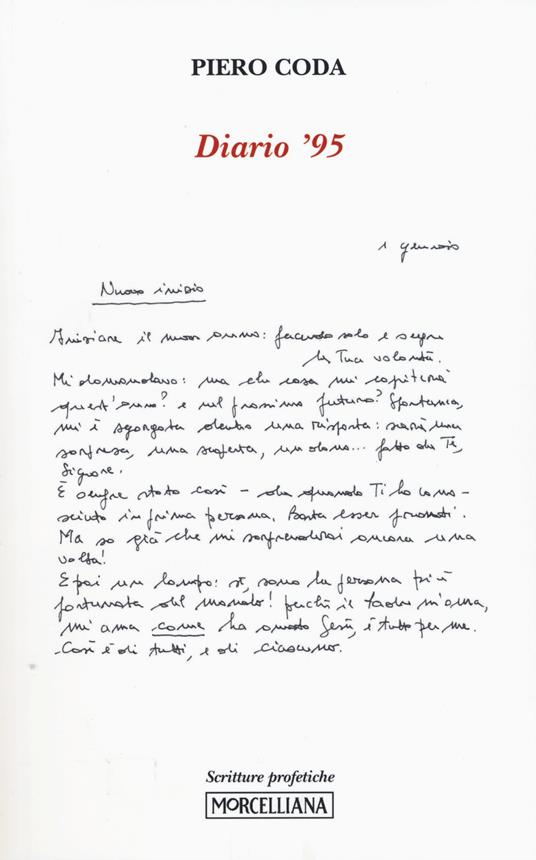 PIERO CODA
Diario ’95
1 gennaio
Nuovo inizio
Iniziare il nuovo anno: facendo solo e sempre
la Tua volontà.
Mi domandavo: ma che cosa mi capiterà
quest'anno? e nel prossimo futuro? Spontanea,
mi è sgorgata dentro una risposta: sarà una
sorpresa, una scoperta, un dono... fatto da Te,
Signore.
È sempre stato così - da quando Ti ho cono-
sciuto in prima persona. Basta esser pronti.
Ma so già che mi sorprenderai ancora una
volta!
E poi un lampo: sì, sono la persona più
fortunata del mondo! perché il Padre m'ama,
mi ama come ha amato Gesù, è tutto per me.
Così è di tutti, e di ciascuno.
Scritture profetiche
MORCELLIANA